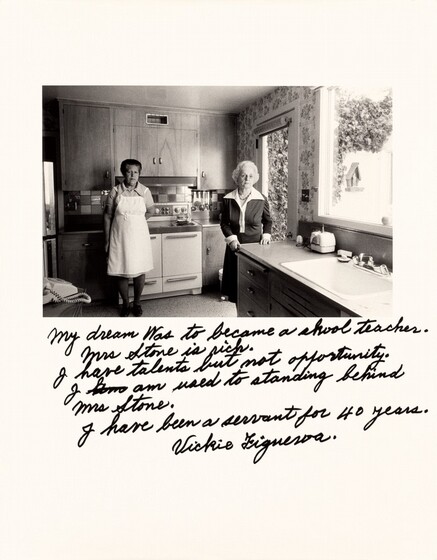 My dream Was to became a shool teacher.
Mrs Stone is rich.
I have talents but not opportunity.
I am used to standing behind
Mrs Stone.
I have been a servant for 40 years.
Vickie Figueroa.